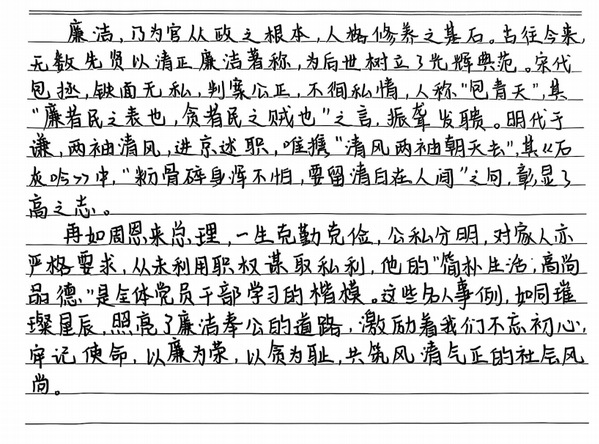 廉洁，乃为官从政之根本，人格修养之基石。古往今来，
无数先贤以清正廉洁著称，为后世树立了光辉典范。宋代
包拯，铁面无私，判案公正，不徇私情，人称"包青天"，其
"廉者民之表也，贪者民之贼也"之言，振聋发聩。明代于
谦，两袖清风，进京述职，唯携"清风两袖朝天去"，其《石
灰吟》中，"粉骨碎身浑不怕，要留清白在人间"之句，彰显了
高之志。
再如周恩来总理，一生克勤克俭，公私分明，对家人亦
严格要求，从未利用职权谋取私利，他的"简朴生活，高尚
品德"是全体党员干部学习的楷模。这些名人事例，如同璀
璨星辰，照亮了廉洁奉公的道路，激励着我们不忘初心，
牢记使命，以廉为荣，以贪为耻，共筑风清气正的社会风
尚。